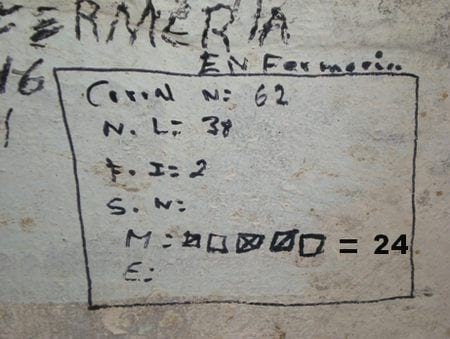 ERMERIA
16
ENFermeria
N: 62
N. L: 38
F. I: 2
S. N:
M: = 24
E: